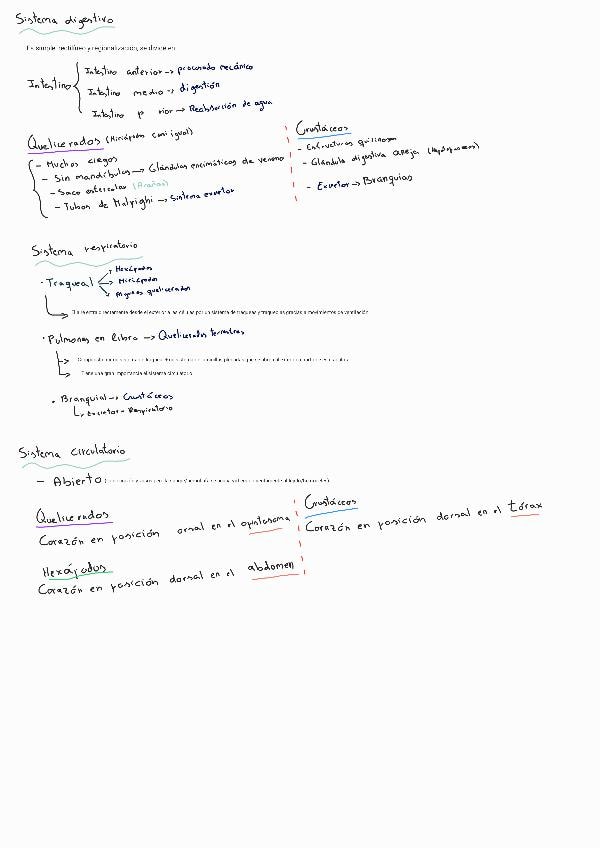 Sistema digestivo
Es simple rectilíneo y regionalización, se divide en
Intestino
Intestino anterior → procesado mecánico
Intestino medio → digestión
Intestino p rior → Reabsorción de agua
Quelicerados (Miriápodos casi igual)
- Muchos ciegos
- Sin mandíbulas → Glándulas enzimáticas de veneno
- Saco estercolar (Arañas)
- Tubos de Malpighi → Sistema excretor
Crustáceos
- Estructuras quitinosas
- Glándula digestiva aneja (Hepatopancreas)
- Excretor → Branquias
Sistema respiratorio
· Traqueal
Hexápodos
Miriápodos
Algunos quelicerados
· Pulmones en libro → Quelicerados terrestres
Tiene una gran importancia el sistema circulatorio
· Branquial → Crustáceos
Excretor - Respiratorio
Sistema circulatorio
- Abierto
Quelicerados
Corazón en posición orsal en el opistosoma
Crustáceos
Corazón en posición dorsal en el tórax
Hexápodos
Corazón en posición dorsal en el abdomen